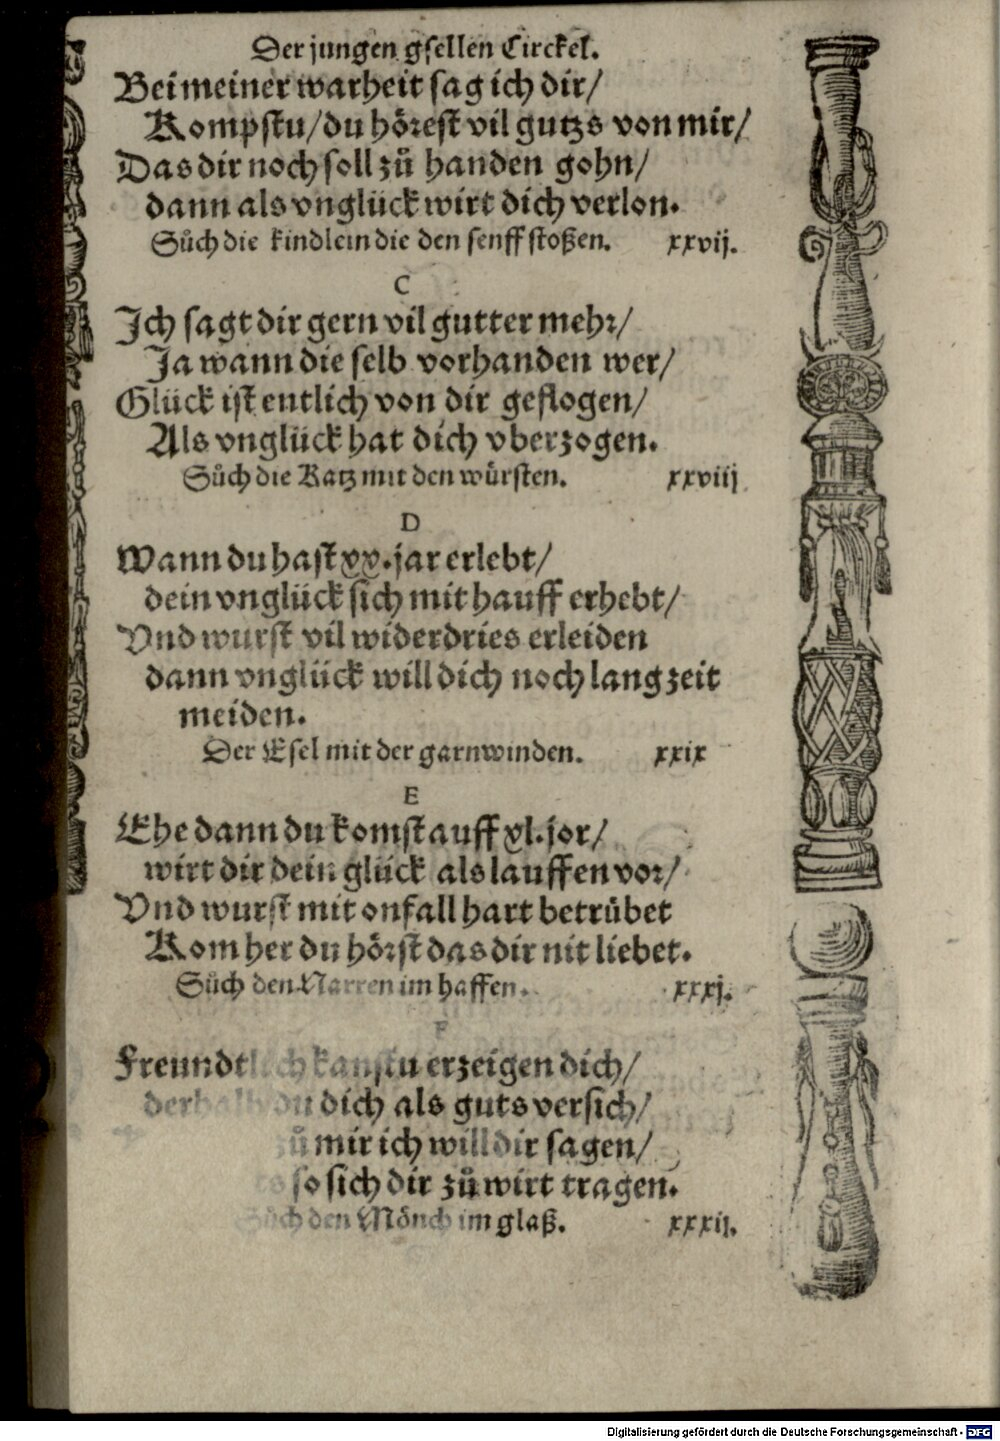 Der jungen gsellen Circkel.
Bei meiner warheit sag ich dir/
Kompstu/du hörest vil gutzs von mir/
Das dir noch soll zů handen gohn/
dann als vnglück wirt dich verlon.
Sůch die kindlein die den senff stoßen. xxvij.
C
Ich sagt dir gern vil gutter mehr/
Ja wann die selb vorhanden wer/
Glück ist entlich von dir geflogen/
Als vnglück hat dich vberzogen.
Sůch die Katz mit den würsten. xxviij
D
Wann du hast xx. jar erlebt/
dein vnglück sich mit hauff erhebt/
Vnd wurst vil widerdries erleiden
dann vnglück will dich noch lang zeit
meiden.
Der Esel mit der garnwinden. xxix
E
Ehe dann du komst auff xl. jor/
wirt dir dein glück als lauffen vor/
Vnd wurst mit onfall hart betrübet
Kom her du hörst das dir nit liebet.
Sůch den Narren im haffen. xxxj.
F
Freundtlich kanstu erzeigen dich/
derhalb du dich als guts versich/
zů mir ich will dir sagen/
so sich dir zů wirt tragen.
Sůch den Mönch im glaß. xxxij.
Digitalisierung gefördert durch die Deutsche Forschungsgemeinschaft - DFG